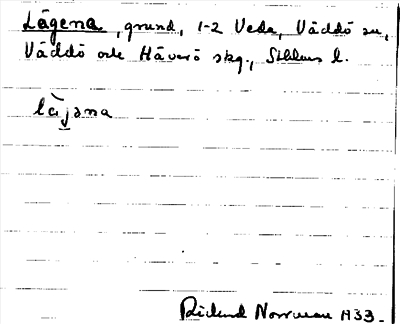 Lågena, grund, 1-2 Veda, Väddö sn,
Väddö och Häverö skg., Sthlms l.
lå̀jəna
Rickard Norrman 1933.